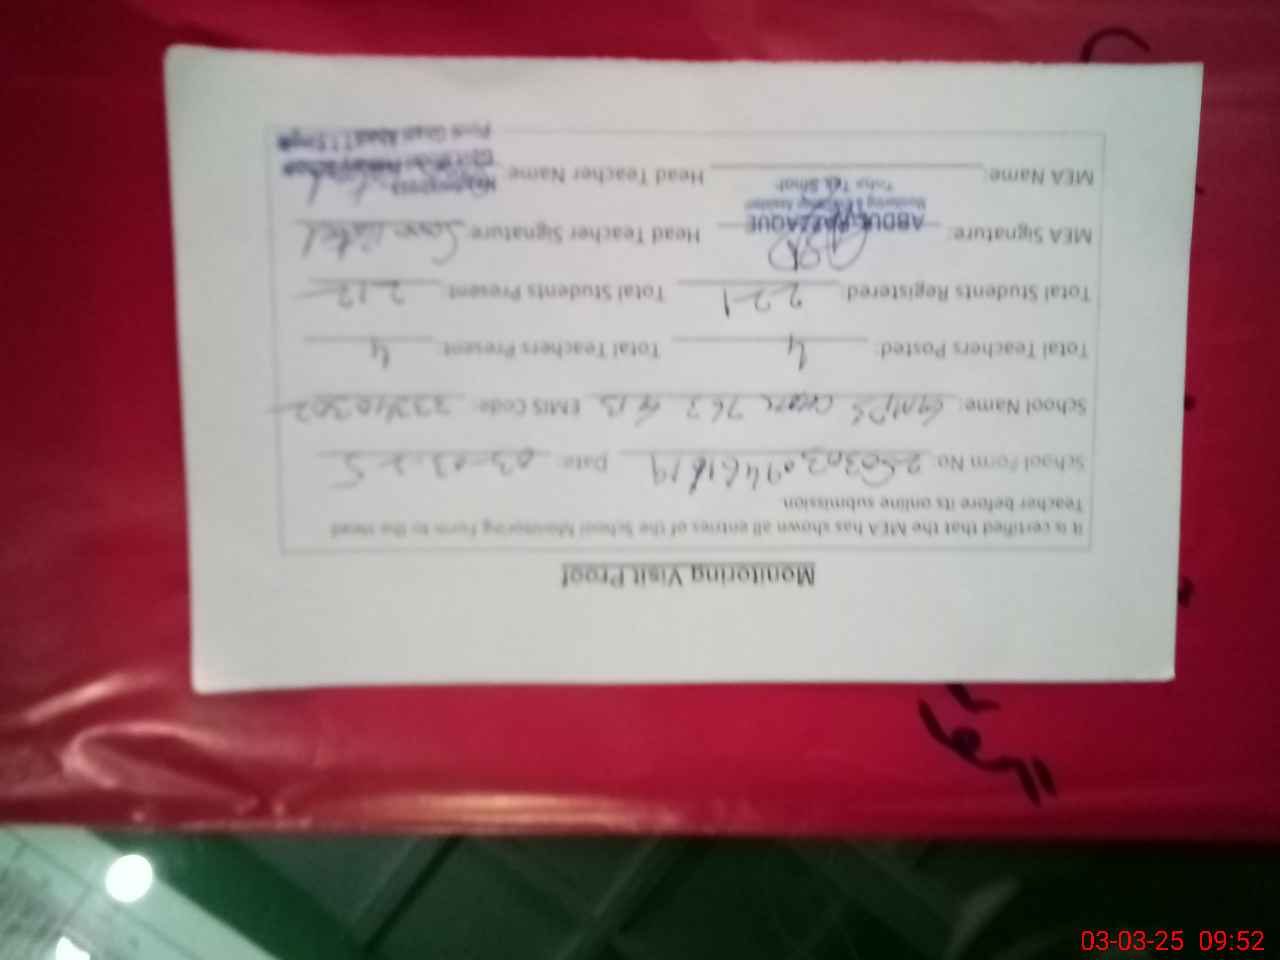 Monitoring Visit Proof
It is certified that the MEA has shown all entries of the School Monitoring Form to the Head
Teacher before its online submission.
School Form No: Date: 03-03-25
School Name: GMPS Chak 763 GB EMIS Code: 33340302
Total Teachers Posted: 4 Total Teachers Present: 4
Total Students Registered: 221 Total Students Present: 212
MEA Signature: Head Teacher Signature:
ABDUL RAZZAQUE
Monitoring & Evaluation Assistant
Toba Tek Singh
MEA Name: Head Teacher Name:
Headmistress
03-03-25 09:52